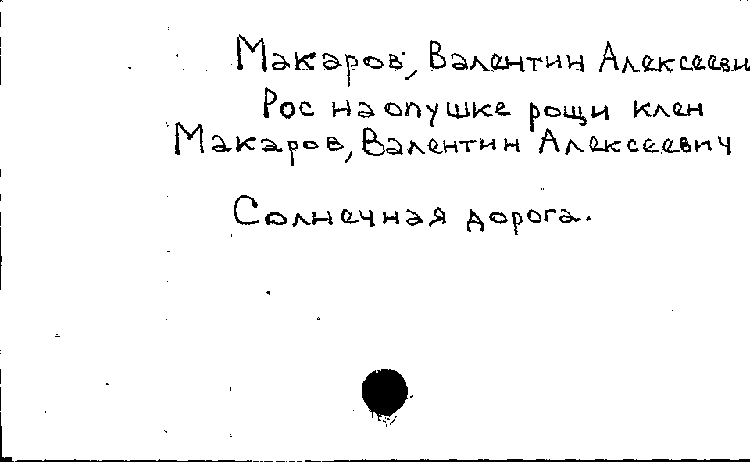 Макаров, Валентин Алексееви
Рос на опушке рощи клен
Макаров, Валентин Алексеевич
Солнечная дорога.